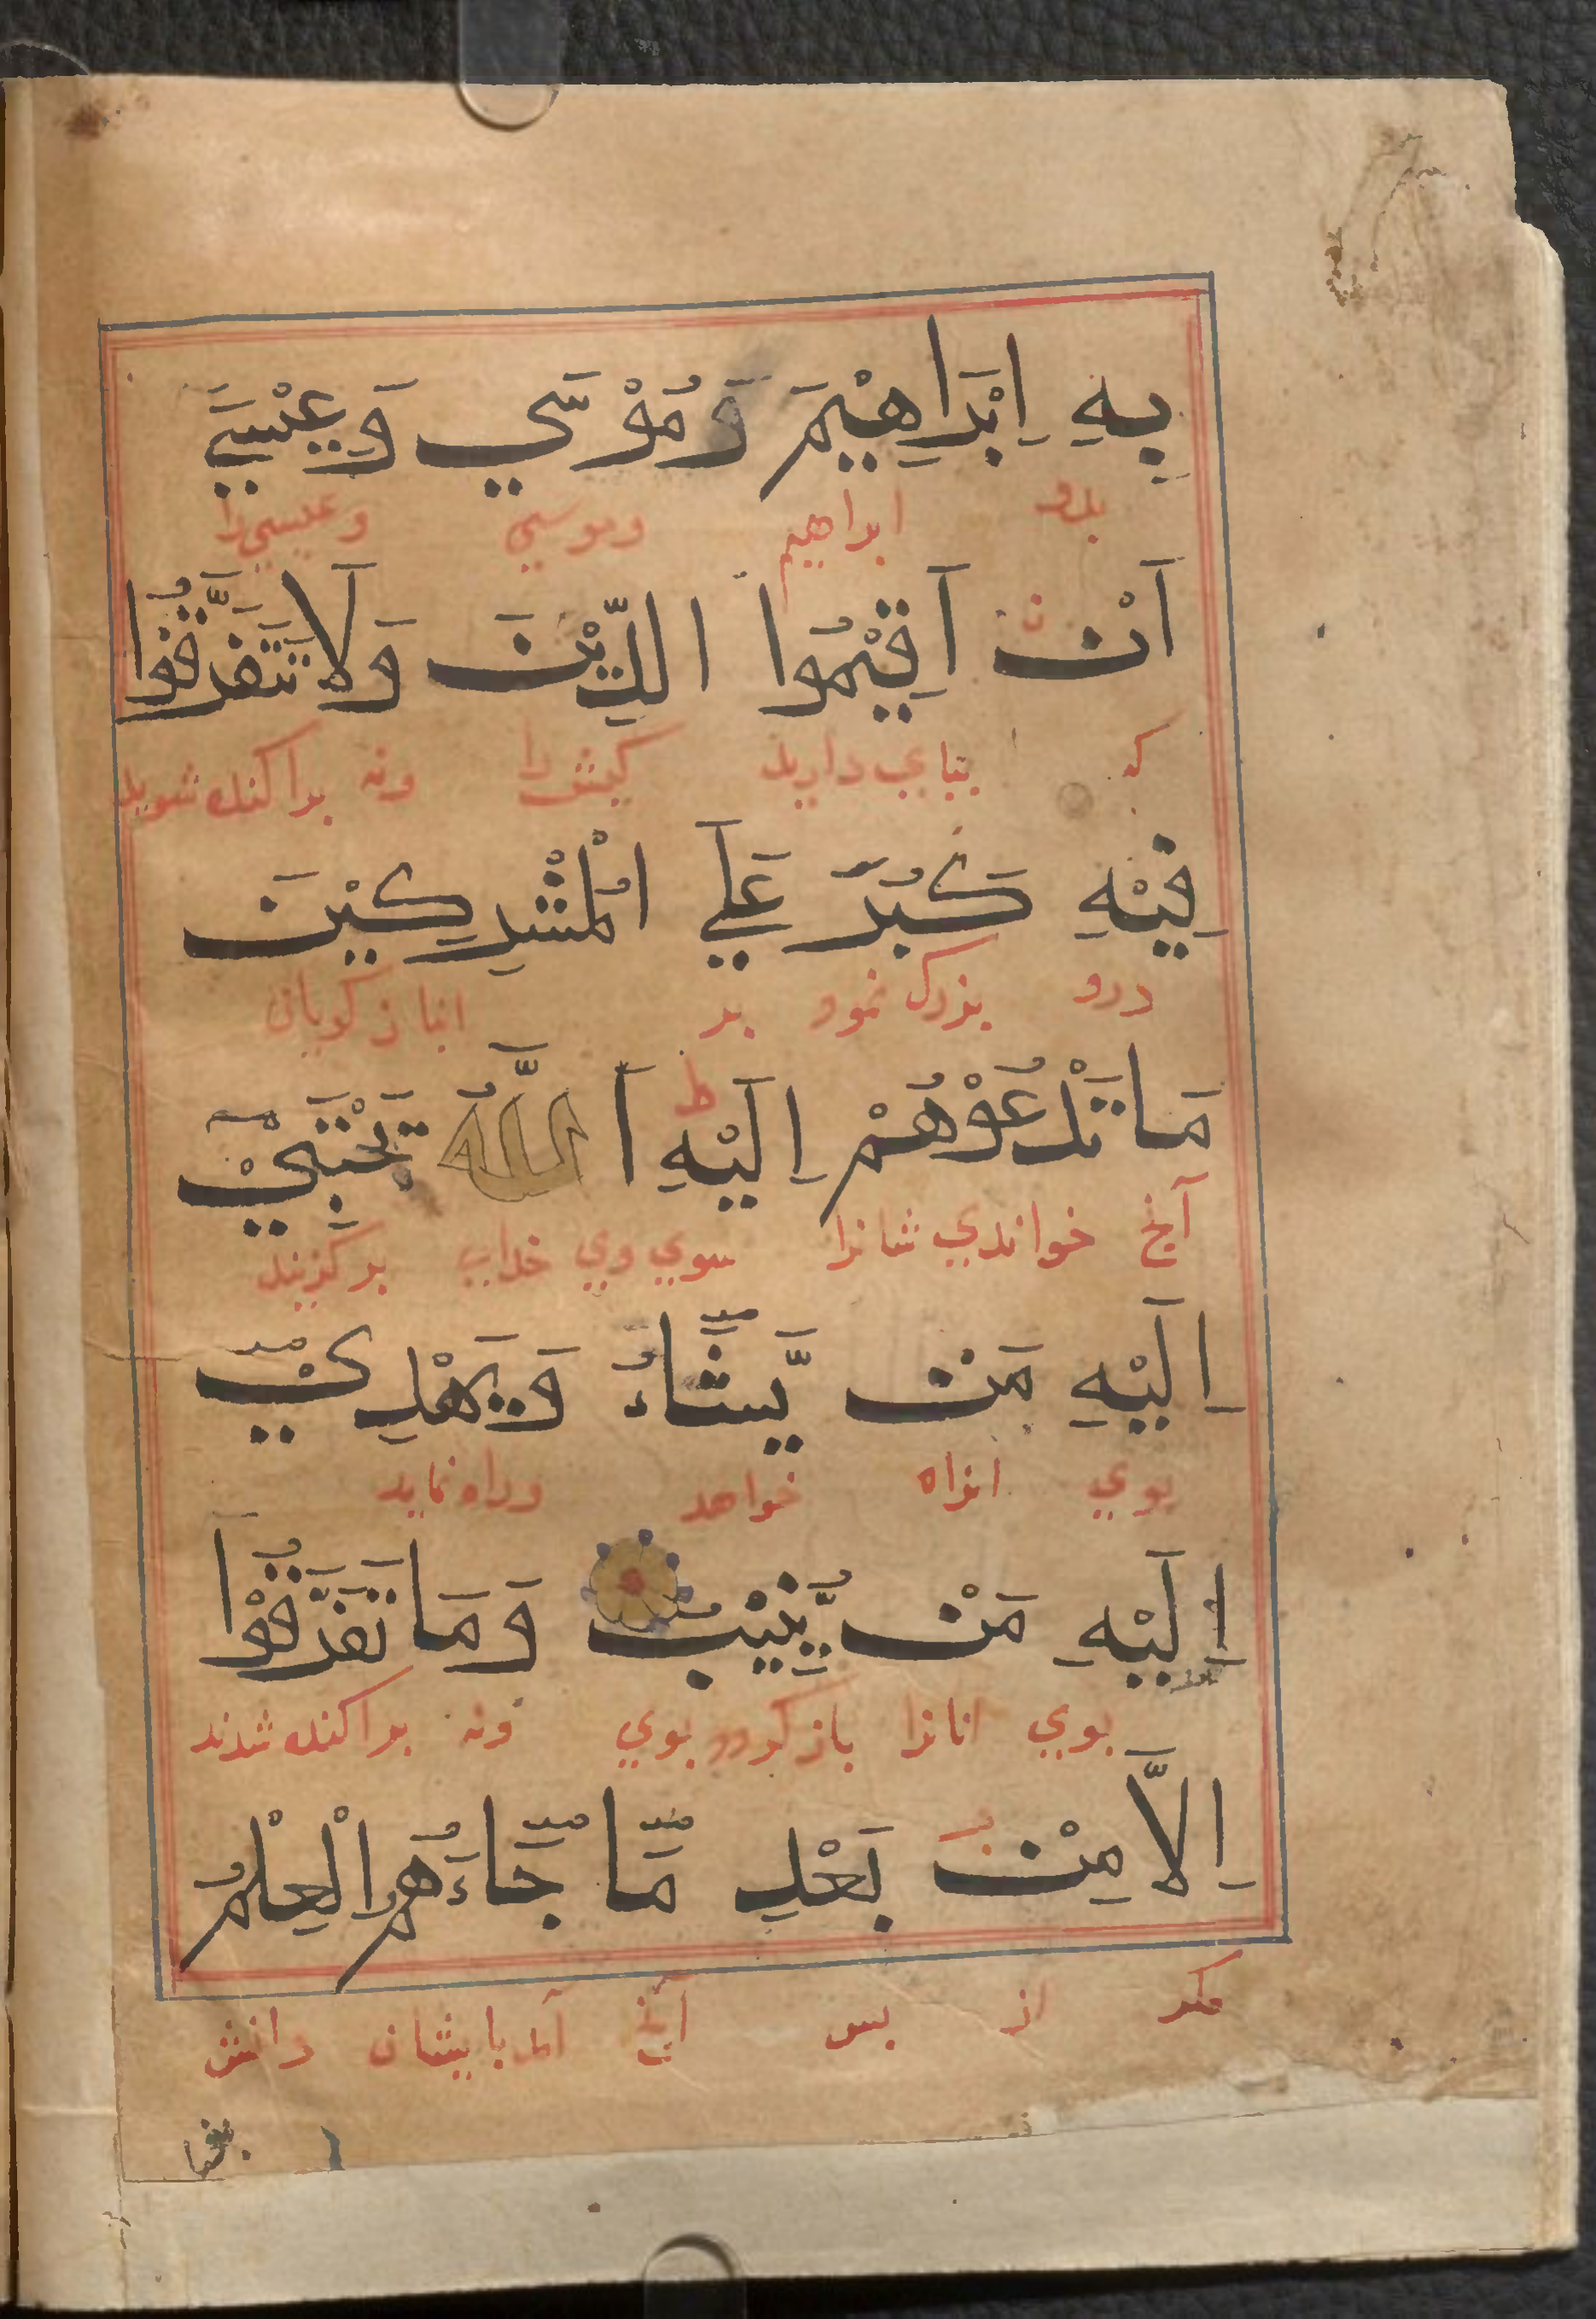 بِهِ اِبْرَاهِيْمَ وَمُوْسَي وَعِيْسَيَ
بدو ابراهيم وموسي وعيسي را
اَنْ اَقِيْمُوا الدِّيْنَ وَلَا تَتَفَرَّقُوْا
كه بپاي داريد كيش را ونه پراكنده شويد
فِيْهِ كَبُرَ عَلَي الْمُشْرِكِيْنَ
درو بزرك نمود بر انبازكويان
مَا تَدْعُوْهُمْ اِلَيْهِ اَللّٰهُ يَجْتَبِيْ
آنچ خواندي شانرا سوي وي خداي بركزيند
اِلَيْهِ مَنْ يَّشَاءُ وَيَهْدِيْ
بوي انراه خواهد وراه نمايد
اِلَيْهِ مَنْ يُّنِيْبُ وَمَا تَفَرَّقُوْا
بوي انانرا بازكردد بوي ونه پراكنده شدند
اِلَّا مِنْ بَعْدِ مَا جَاءَهُمُ الْعِلْمُ
مكر از پس آنچ آمد بايشان دانش
بغيا